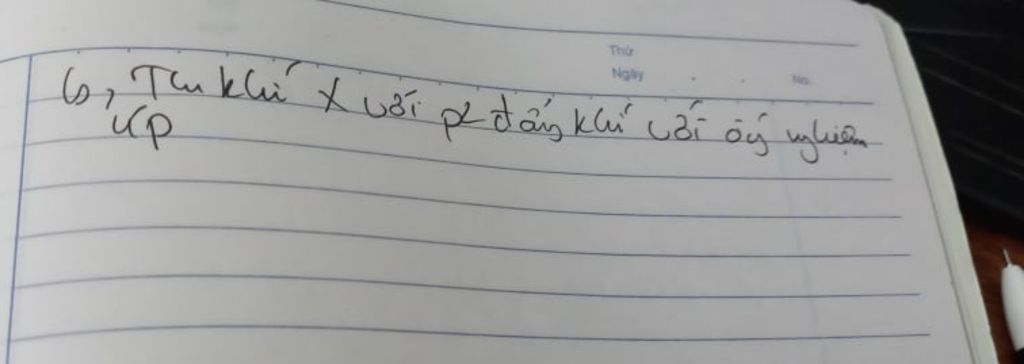 Thứ
Ngày . . No.
6, Thu khí X với p² đẩy khí với ống nghiệm
úp